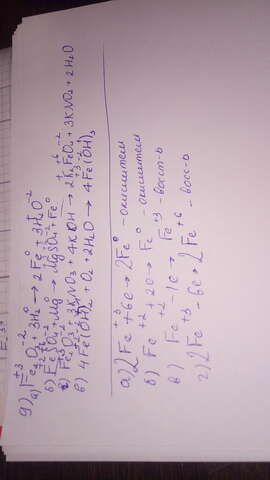 9) а) Fe₂O₃ + 3H₂ → 2Fe + 3H₂O
б) FeSO₄ + Mg → MgSO₄ + Fe
в) Fe₂O₃ + 3KNO₃ + 4KOH → 2K₂FeO₄ + 3KNO₂ + 2H₂O
в) 4Fe(OH)₂ + O₂ + 2H₂O → 4Fe(OH)₃
а) 2Fe⁺³ + 6e → 2Fe⁰ - окислитель
б) Fe⁺² + 2e → Fe⁰ - окислитель
в) Fe⁺² - 1e → Fe⁺³ - восст-ь
г) 2Fe⁺³ - 6e → 2Fe⁺⁶ - восс-ь